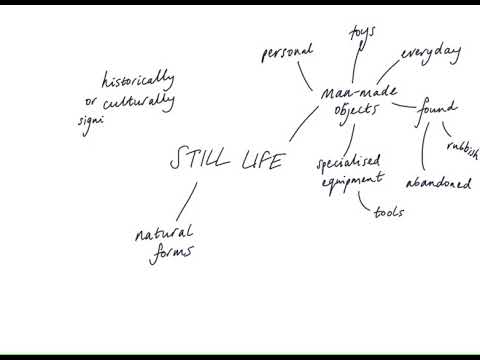 toys
personal
everyday
man-made
objects
found
rubbish
abandoned
specialised
equipment
tools
historically
or culturally
signi
STILL LIFE
natural
forms